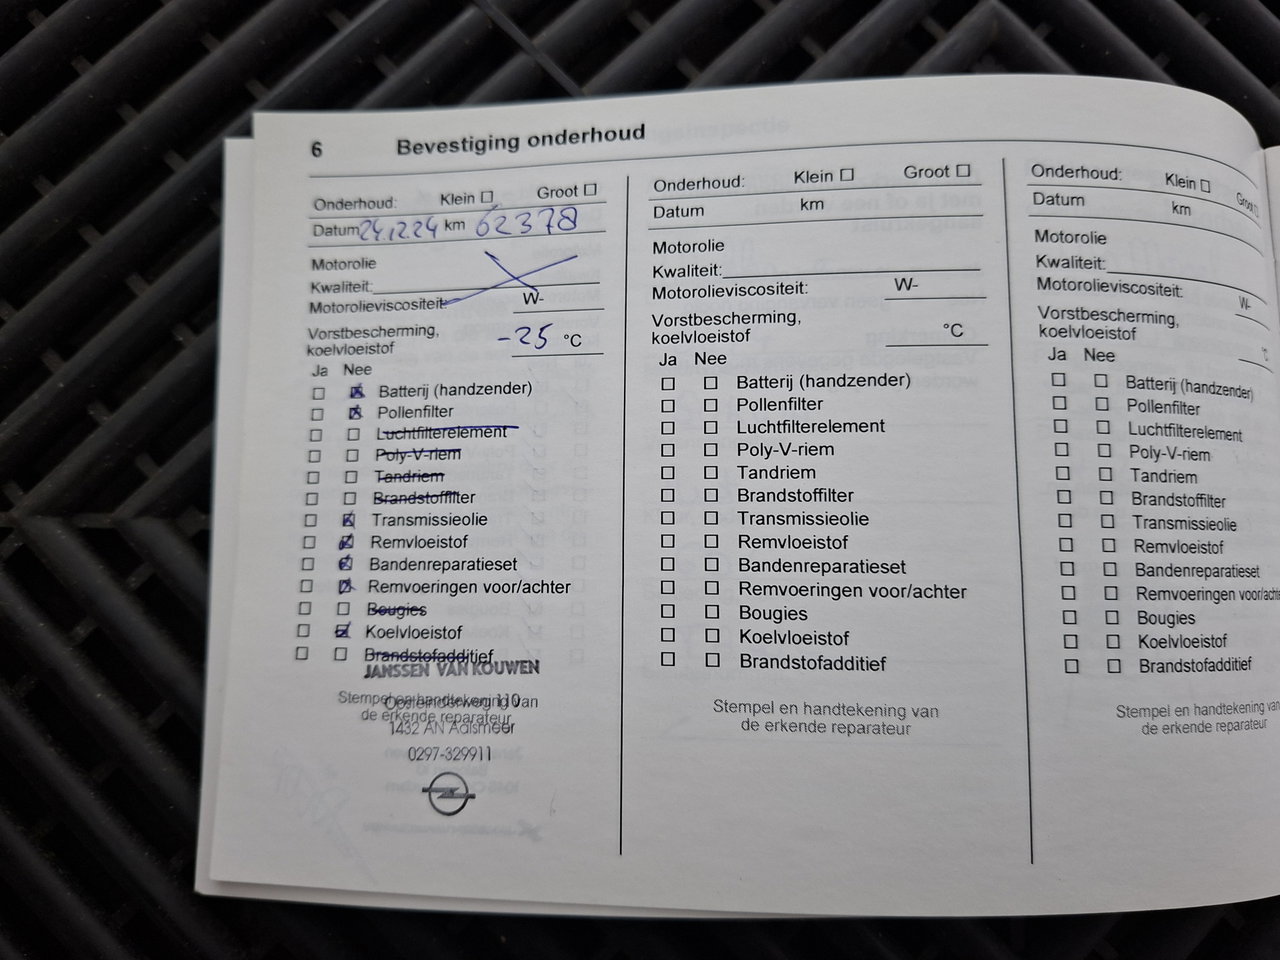 6 Bevestiging onderhoud
Onderhoud: Klein ☐ Groot ☐
Datum 24.12.24 km 62378
Motorolie
Kwaliteit:
Motorolieviscositeit: W-
Vorstbescherming,
koelvloeistof -25 °C
Ja Nee
☐ ☒ Batterij (handzender)
☐ ☒ Pollenfilter
☐ ☐ Luchtfilterelement
☐ ☐ Poly-V-riem
☐ ☐ Tandriem
☐ ☐ Brandstoffilter
☐ ☒ Transmissieolie
☐ ☒ Remvloeistof
☐ ☒ Bandenreparatieset
☐ ☒ Remvoeringen voor/achter
☐ ☐ Bougies
☐ ☒ Koelvloeistof
☐ ☐ Brandstofadditief
JANSSEN VAN KOUWEN
Stempel en handtekening van
Oosteinderweg 110
de erkende reparateur
1432 AN Aalsmeer
0297-329911
Onderhoud: Klein ☐ Groot ☐
Datum km
Motorolie
Kwaliteit:
Motorolieviscositeit: W-
Vorstbescherming,
koelvloeistof °C
Ja Nee
☐ ☐ Batterij (handzender)
☐ ☐ Pollenfilter
☐ ☐ Luchtfilterelement
☐ ☐ Poly-V-riem
☐ ☐ Tandriem
☐ ☐ Brandstoffilter
☐ ☐ Transmissieolie
☐ ☐ Remvloeistof
☐ ☐ Bandenreparatieset
☐ ☐ Remvoeringen voor/achter
☐ ☐ Bougies
☐ ☐ Koelvloeistof
☐ ☐ Brandstofadditief
Stempel en handtekening van
de erkende reparateur
Onderhoud: Klein ☐ Groot ☐
Datum km
Motorolie
Kwaliteit:
Motorolieviscositeit: W-
Vorstbescherming,
koelvloeistof °C
Ja Nee
☐ ☐ Batterij (handzender)
☐ ☐ Pollenfilter
☐ ☐ Luchtfilterelement
☐ ☐ Poly-V-riem
☐ ☐ Tandriem
☐ ☐ Brandstoffilter
☐ ☐ Transmissieolie
☐ ☐ Remvloeistof
☐ ☐ Bandenreparatieset
☐ ☐ Remvoeringen voor/achte
☐ ☐ Bougies
☐ ☐ Koelvloeistof
☐ ☐ Brandstofadditief
Stempel en handtekening van
de erkende reparateur